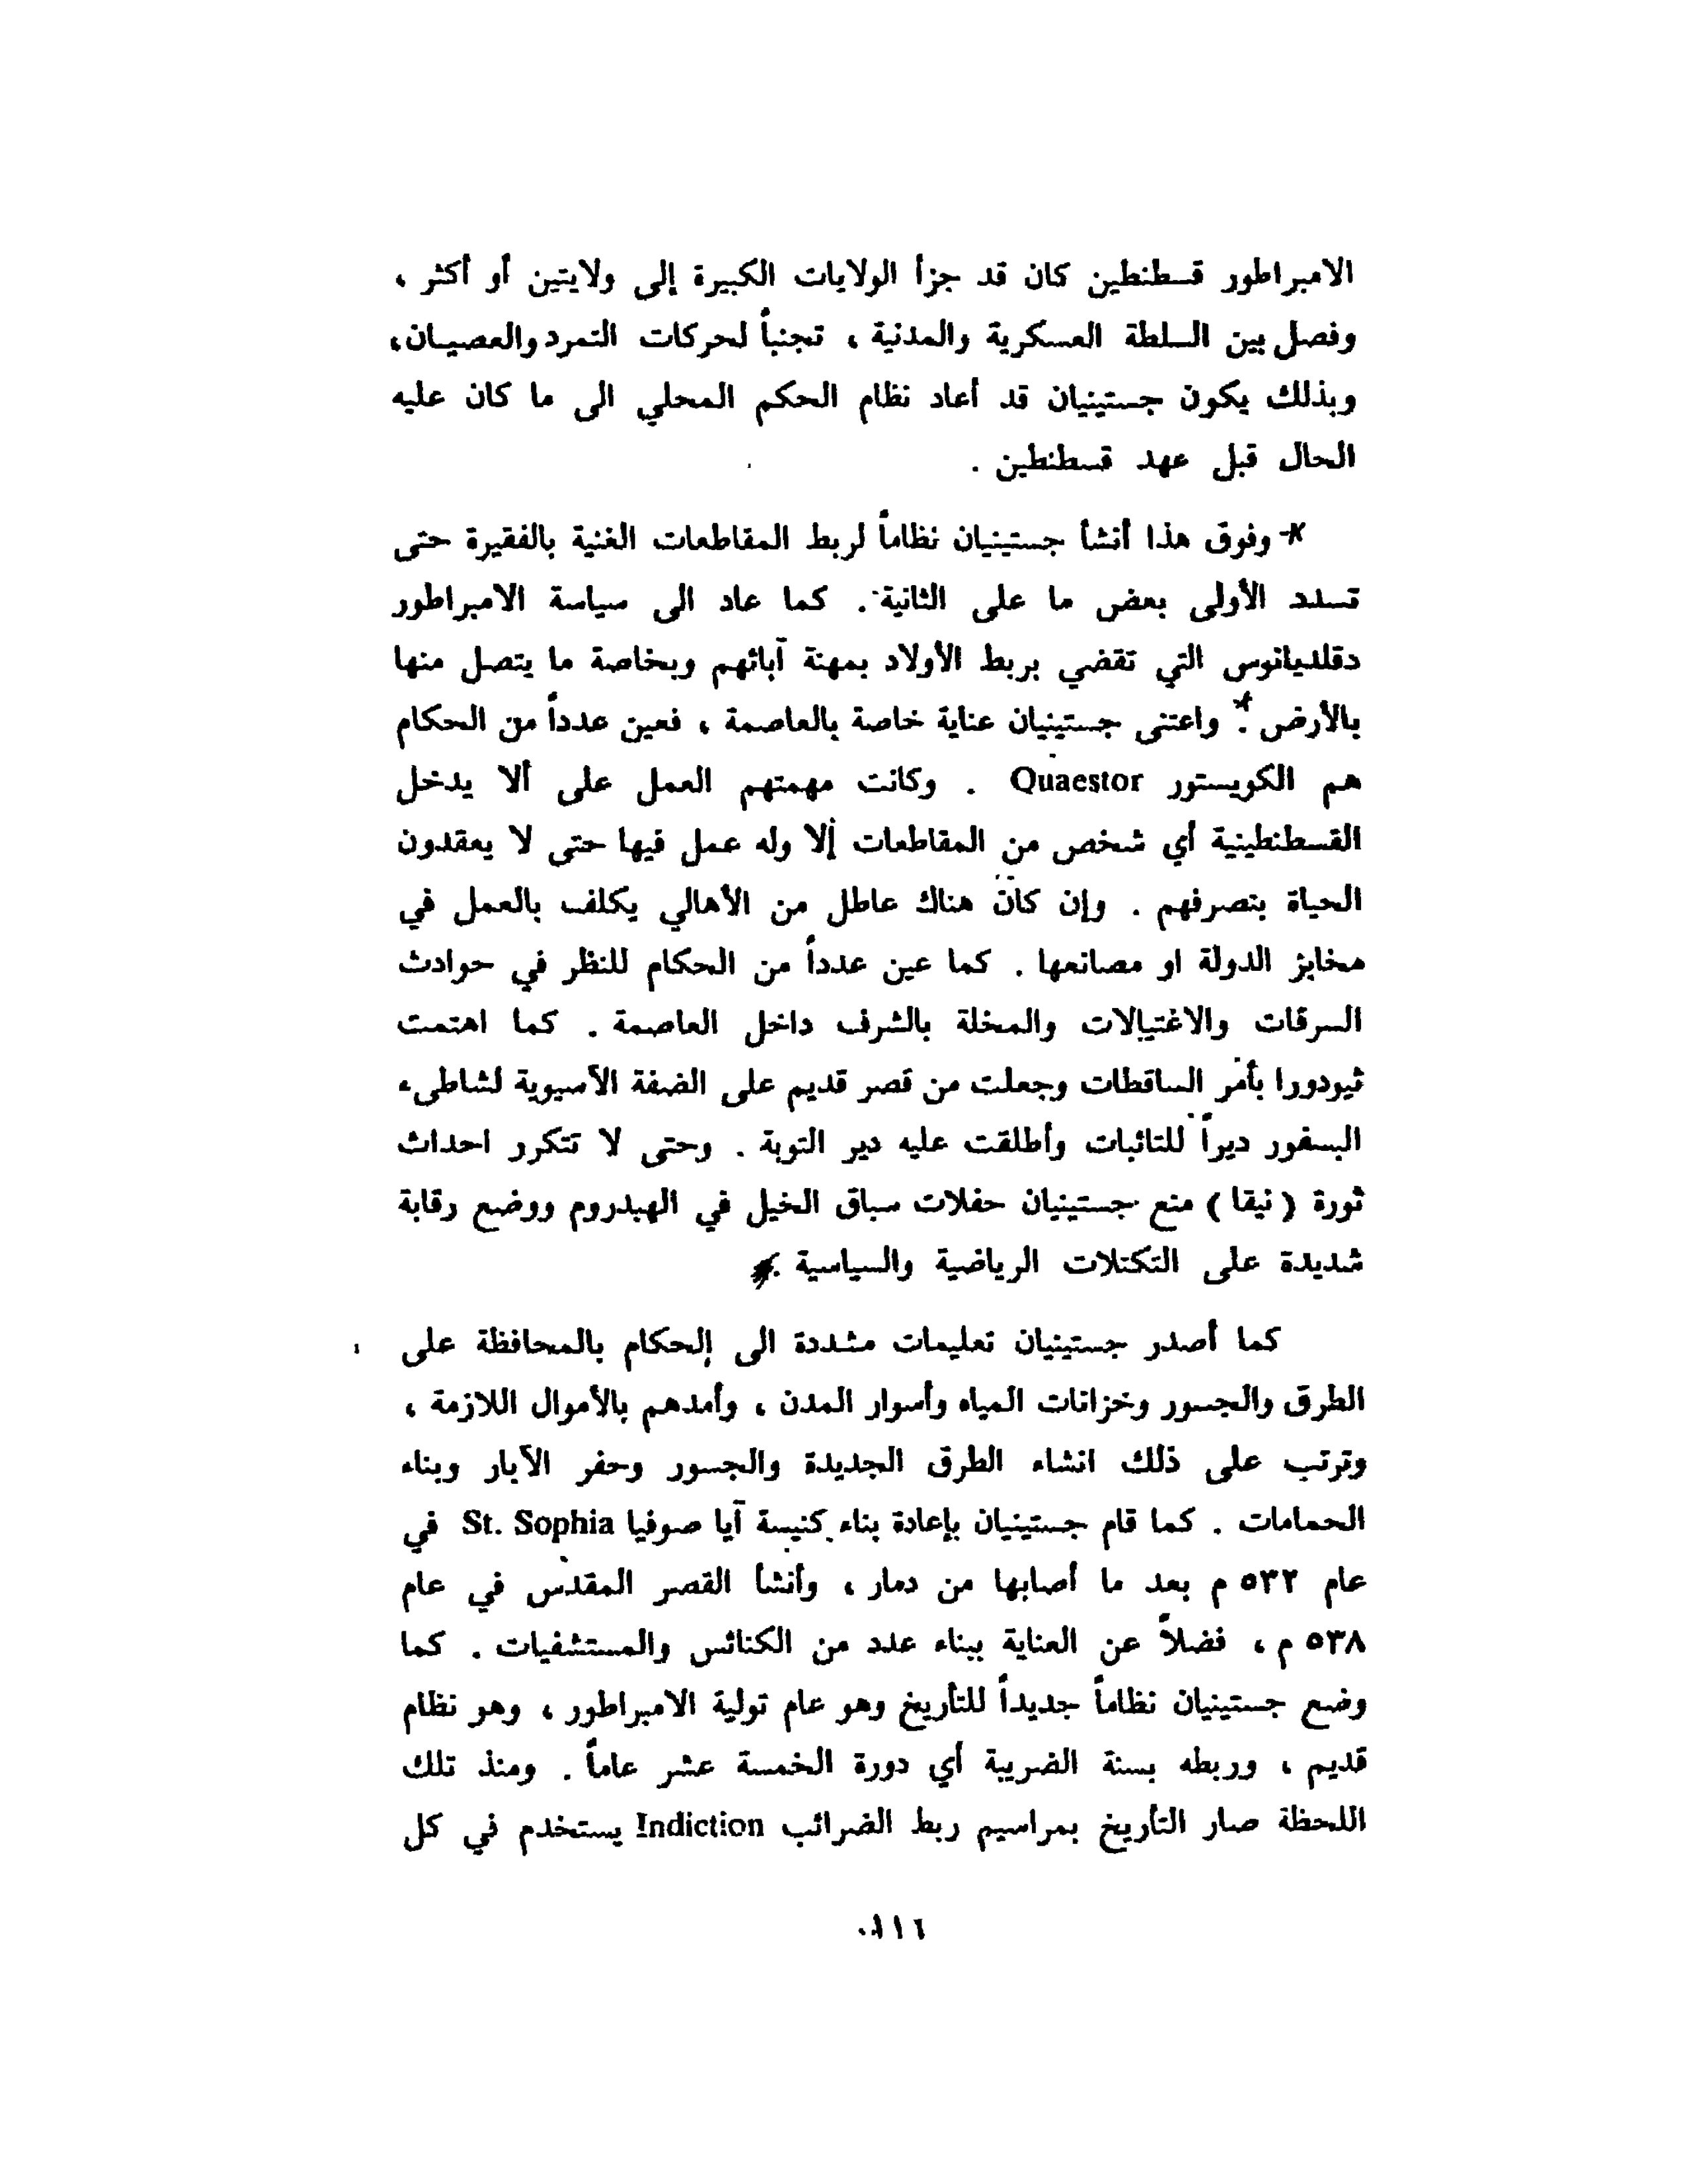 الامبراطور قسطنطين كان قد جزأ الولايات الكبيرة إلى ولايتين أو أكثر ،
وفصل بين السلطة العسكرية والمدنية ، تجنباً لحركات التمرد والعصيان،
وبذلك يكون جستينيان قد أعاد نظام الحكم المحلي الى ما كان عليه
الحال قبل عهد قسطنطين .
وفوق هذا أنشأ جستينيان نظاماً لربط المقاطعات الغنية بالفقيرة حتى
تسدد الأولى بعض ما على الثانية . كما عاد الى سياسة الامبراطور
دقلديانوس التي تقضي بربط الأولاد بمهنة آبائهم وبخاصة ما يتصل منها
بالأرض . واعتنى جستينيان عناية خاصة بالعاصمة ، فعين عدداً من الحكام
هم الكويستور Quaestor . وكانت مهمتهم العمل على ألا يدخل
القسطنطينية أي شخص من المقاطعات إلا وله عمل فيها حتى لا يعقدون
الحياة بتصرفهم . وإن كان هناك عاطل من الأهالي يكلف بالعمل في
مخابز الدولة او مصانعها . كما عين عدداً من الحكام للنظر في حوادث
السرقات والاغتيالات والمخلة بالشرف داخل العاصمة . كما اهتمت
ثيودورا بأمر الساقطات وجعلت من قصر قديم على الضفة الآسيوية لشاطىء
البسفور ديراً للتائبات وأطلقت عليه دير التوبة . وحتى لا تتكرر احداث
ثورة ( نيقا ) منع جستينيان حفلات سباق الخيل في الهبدروم ووضع رقابة
شديدة على التكتلات الرياضية والسياسية .
كما أصدر جستينيان تعليمات مشددة الى الحكام بالمحافظة على
الطرق والجسور وخزانات المياه وأسوار المدن ، وأمدهم بالأموال اللازمة ،
وترتب على ذلك انشاء الطرق الجديدة والجسور وحفر الآبار وبناء
الحمامات . كما قام جستينيان بإعادة بناء كنيسة آيا صوفيا St. Sophia في
عام ٥٣٢ م بعد ما أصابها من دمار ، وأنشأ القصر المقدس في عام
٥٣٨ م ، فضلاً عن العناية ببناء عدد من الكنائس والمستشفيات . كما
وضع جستينيان نظاماً جديداً للتأريخ وهو عام تولية الامبراطور ، وهو نظام
قديم ، وربطه بسنة الضريبة أي دورة الخمسة عشر عاماً . ومنذ تلك
اللحظة صار التأريخ بمراسيم ربط الضرائب Indiction يستخدم في كل
١١٦